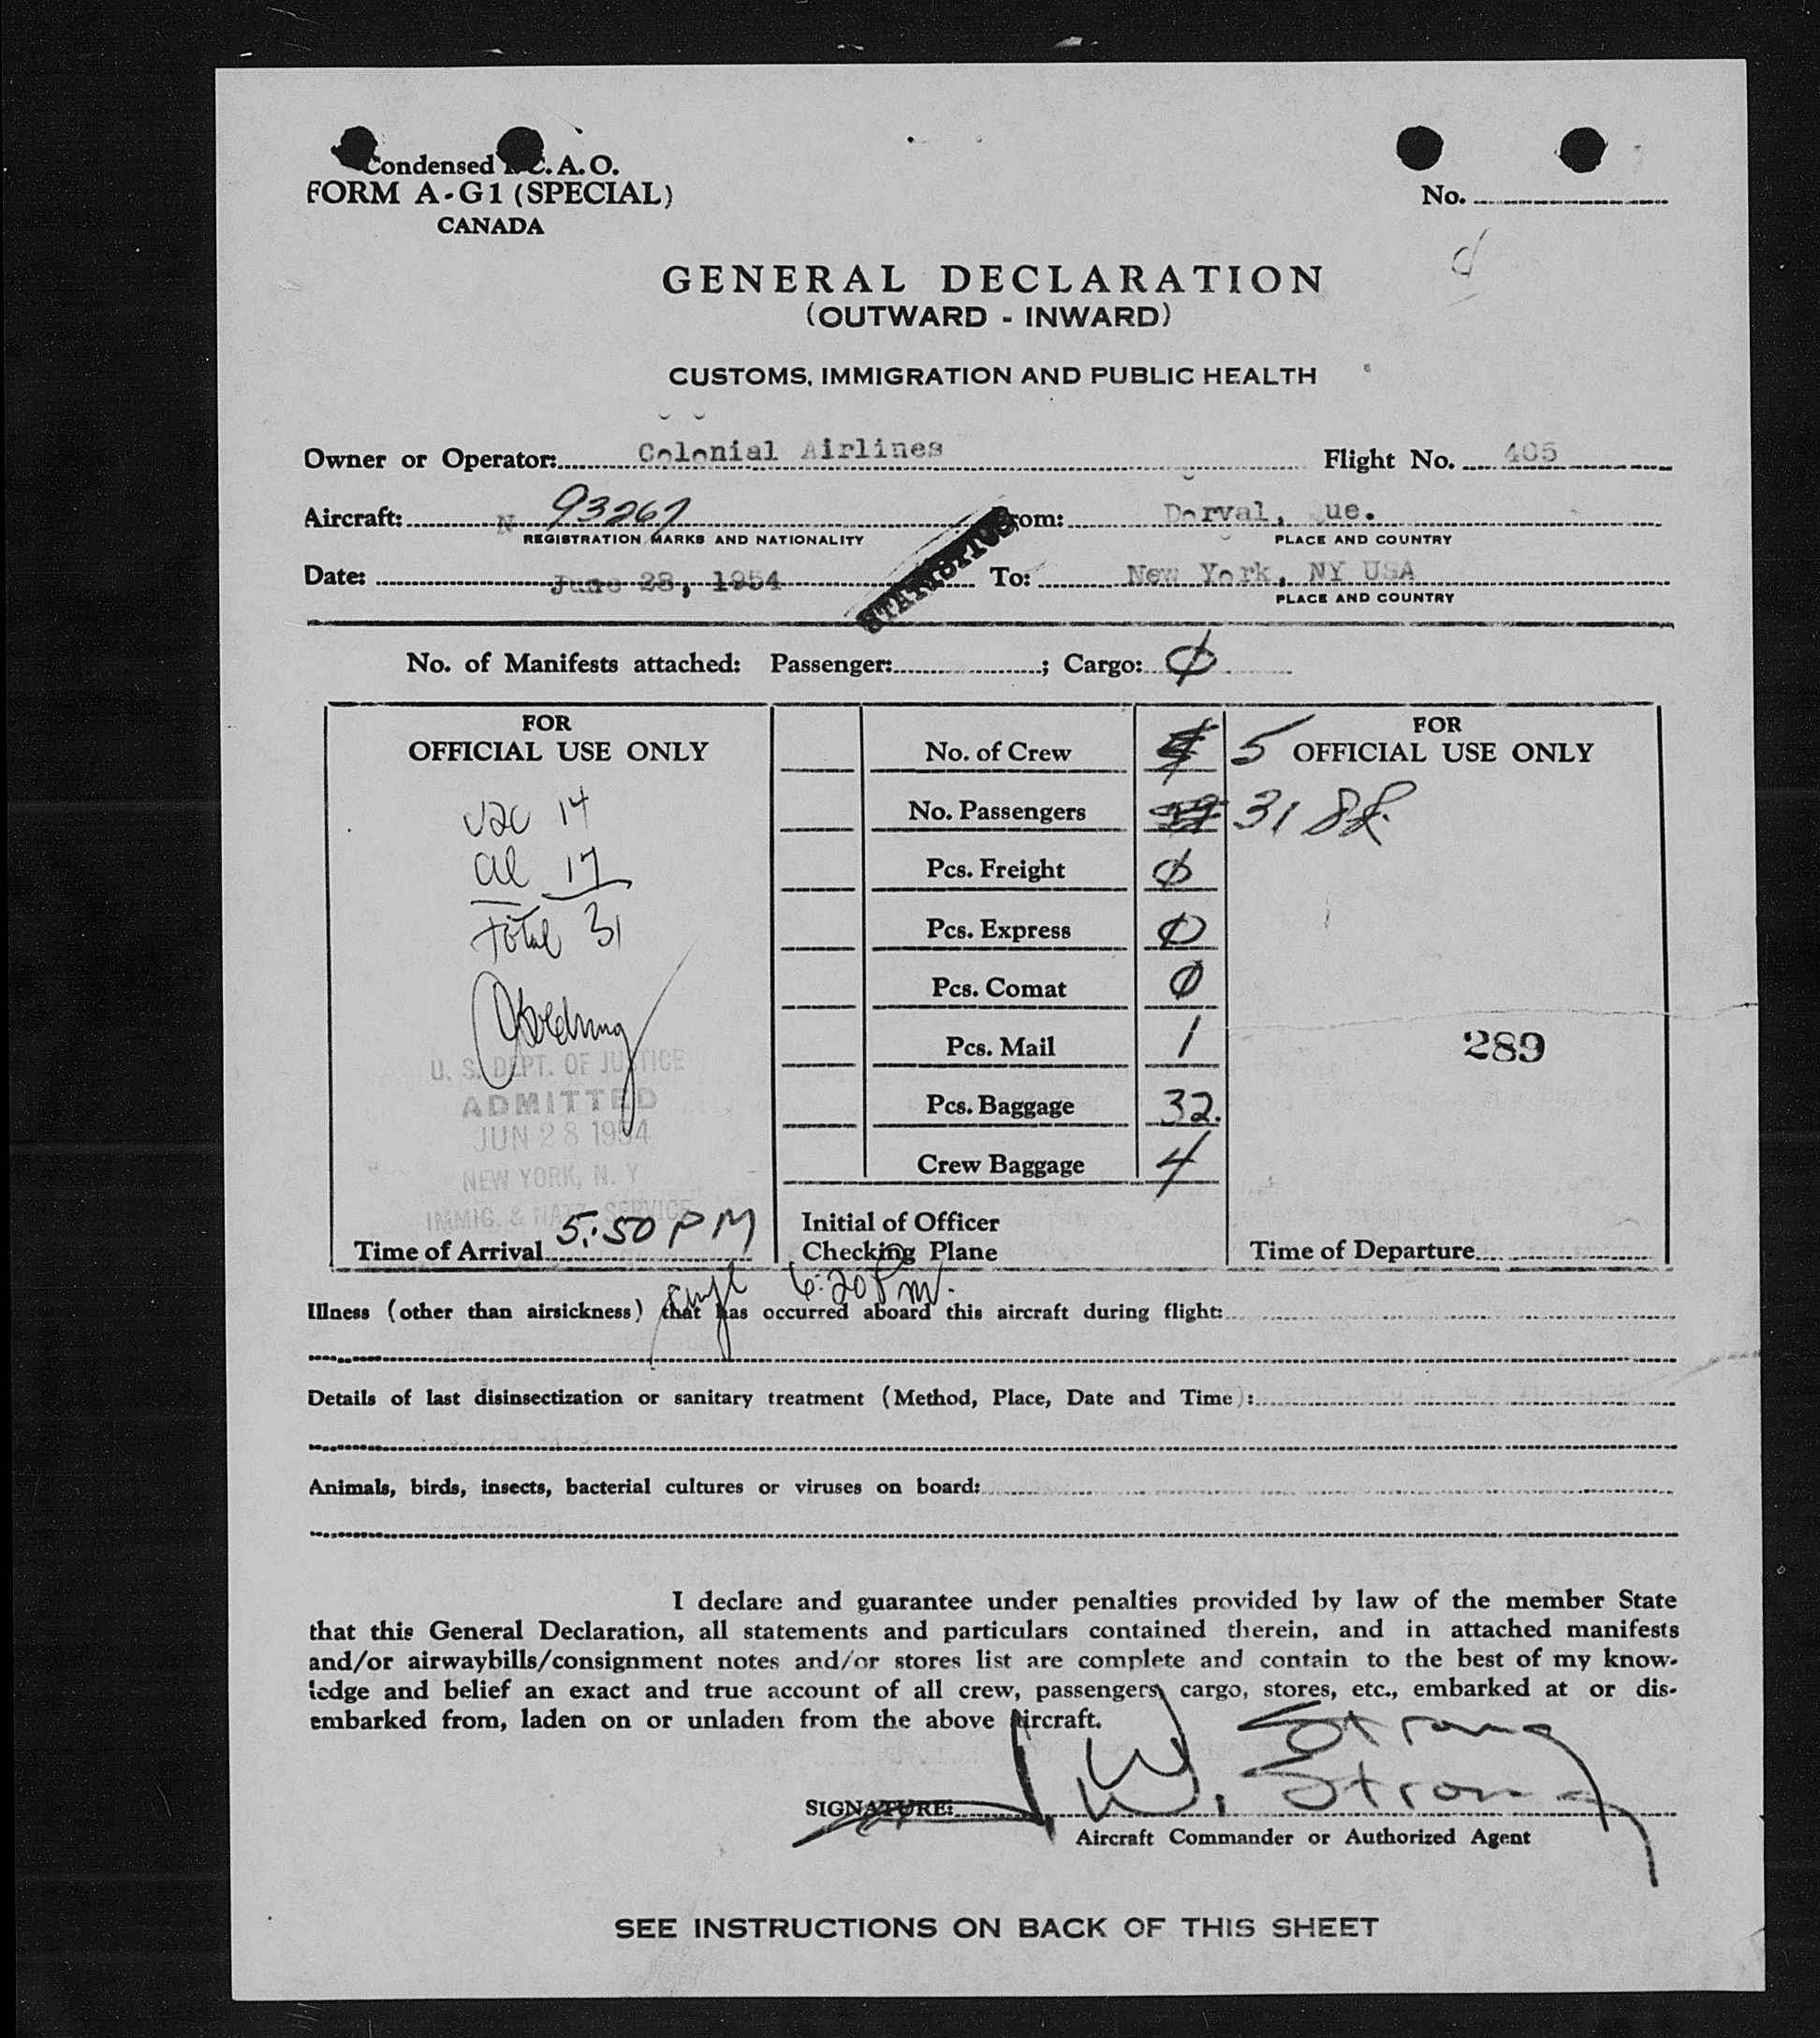 Condensed I. C. A. O.
FORM A-G1 (SPECIAL)
CANADA
No.
GENERAL DECLARATION
(OUTWARD - INWARD)
CUSTOMS, IMMIGRATION AND PUBLIC HEALTH
Owner or Operator: Colonial Airlines Flight No. 405
Aircraft: N 93267 From: Dorval, Que.
REGISTRATION MARKS AND NATIONALITY PLACE AND COUNTRY
STATISTICS
Date: June 28, 1954 To: New York, NY USA
PLACE AND COUNTRY
No. of Manifests attached: Passenger: ; Cargo: 0
FOR
OFFICIAL USE ONLY
USC 14
al 17
Total 31
U. S. DEPT. OF JUSTICE
ADMITTED
JUN 28 1954
NEW YORK, N. Y
IMMIG. & NATZ. SERVICE
Time of Arrival 5:50 PM
No. of Crew 4 5
No. Passengers 31
Pcs. Freight 0
Pcs. Express 0
Pcs. Comat 0
Pcs. Mail 1
Pcs. Baggage 32.
Crew Baggage 4
Initial of Officer
Checking Plane
6:20 Pm.
FOR
OFFICIAL USE ONLY
289
Time of Departure
Illness (other than airsickness) that has occurred aboard this aircraft during flight:
Details of last disinsectization or sanitary treatment (Method, Place, Date and Time):
Animals, birds, insects, bacterial cultures or viruses on board:
I declare and guarantee under penalties provided by law of the member State
that this General Declaration, all statements and particulars contained therein, and in attached manifests
and/or airwaybills/consignment notes and/or stores list are complete and contain to the best of my know-
ledge and belief an exact and true account of all crew, passengers, cargo, stores, etc., embarked at or dis-
embarked from, laden on or unladen from the above aircraft.
Strong
SIGNATURE: W. Strong
Aircraft Commander or Authorized Agent
SEE INSTRUCTIONS ON BACK OF THIS SHEET